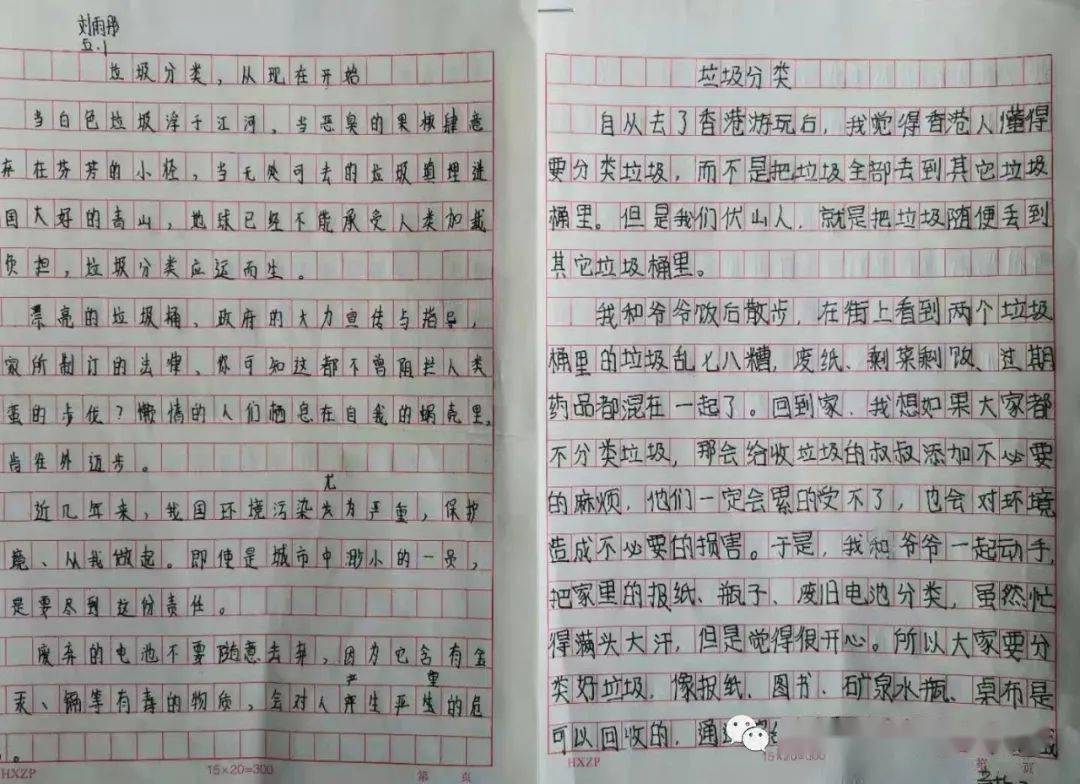 刘雨彤
五.1
垃圾分类，从现在开始
当白色垃圾浮于江河，当恶臭的果核肆意
弃在芬芳的小径，当无处可去的垃圾填埋进
国大好的高山，地球已经不能承受人类加载
负担，垃圾分类应运而生。
漂亮的垃圾桶、政府的大力宣传与指导，
家所制订的法律、你可知这都不曾阻拦人类
蛋的步伐？懒惰的人们栖息在自我的蜗壳里，
肯往外迈步。
尤
近几年来，我国环境污染为严重，保护
境、从我做起。即使是城市中渺小的一员，
是要尽到这份责任。
废弃的电池不要随意丢弃，因为它含有金
严 重
汞、镉等有毒的物质，会对人产生严的危
。
HXZP
15×20=300
第 页
垃圾分类
自从去了香港游玩后，我觉得香港人懂得
要分类垃圾，而不是把垃圾全部去到其它垃圾
桶里。但是我们伏山人，就是把垃圾随便丢到
其它垃圾桶里。
我和爷爷饭后散步，在街上看到两个垃圾
桶里的垃圾乱七八糟，废纸、剩菜剩饭、过期
药品都混在一起了。回到家，我想如果大家都
不分类垃圾，那会给收垃圾的叔叔添加不必要
的麻烦，他们一定会累的受不了，也会对环境
造成不必要的损害。于是，我和爷爷一起动手，
把家里的报纸、瓶子、废旧电池分类，虽然忙
得满头大汗，但是觉得很开心。所以大家要分
类好垃圾，像报纸、图书、矿泉水瓶、桌布是
可以回收的，通过
HXZP
15×20=300
第 页